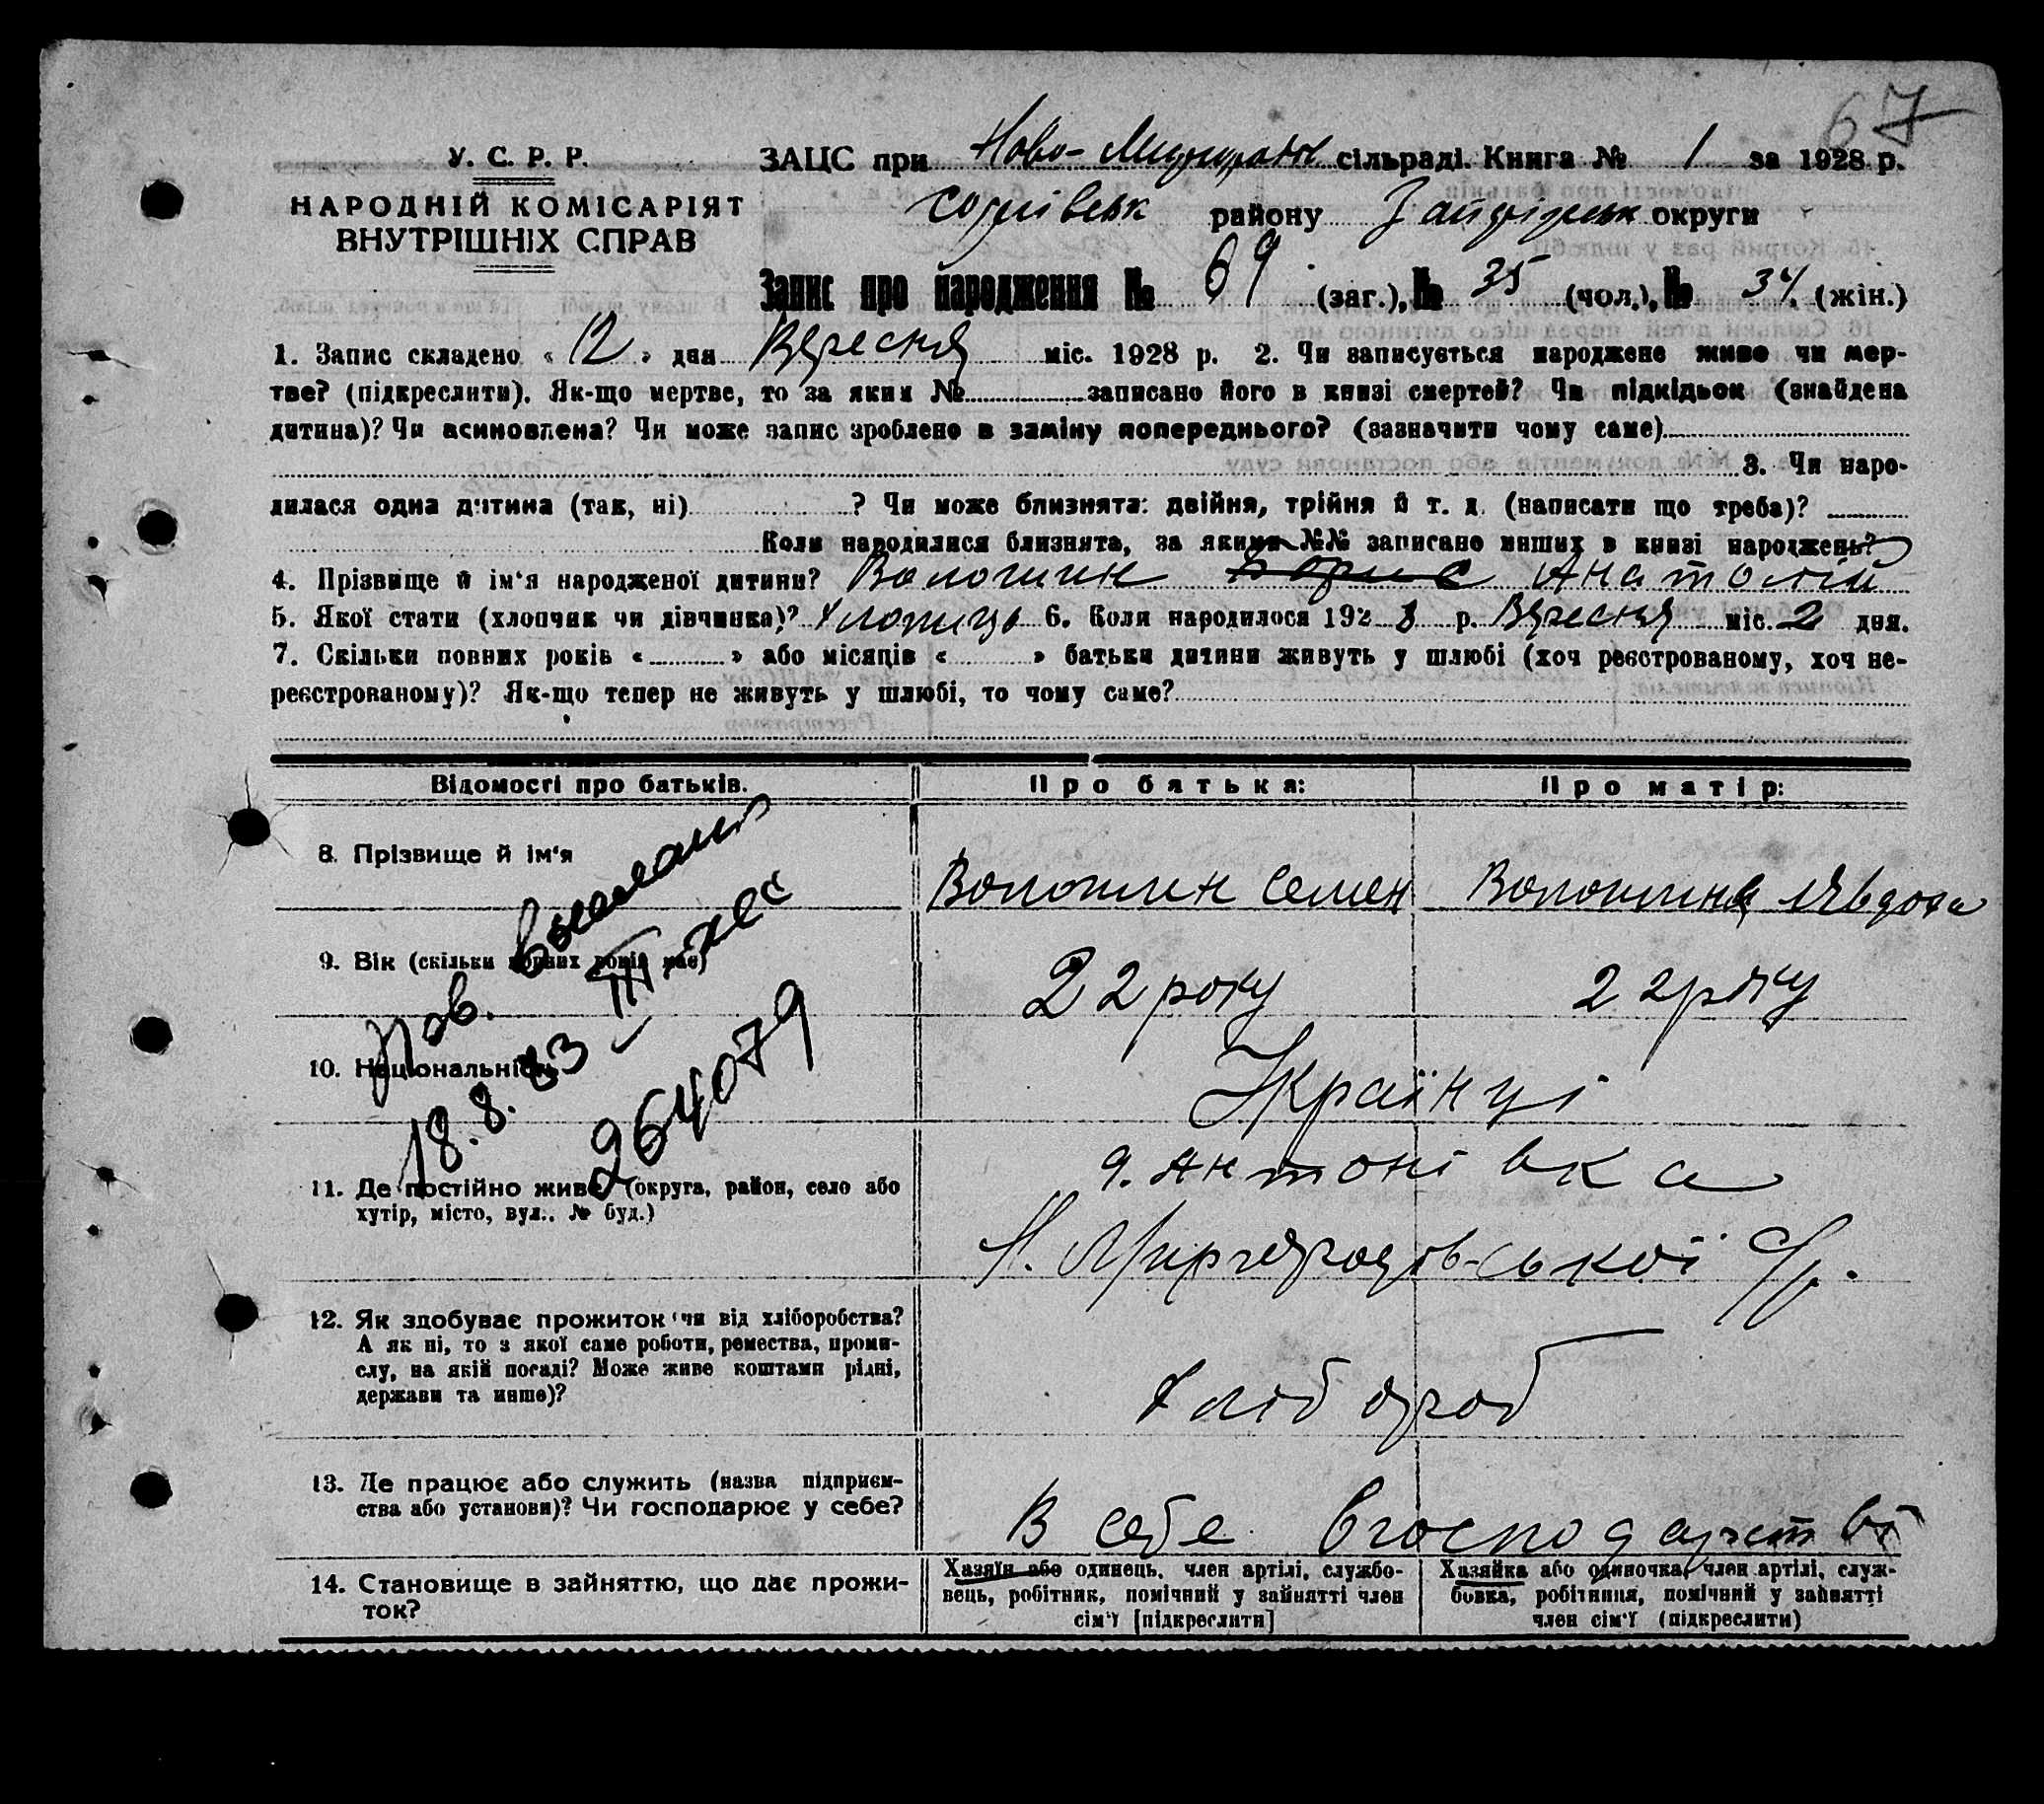 67
У. С. Р. Р.
НАРОДНІЙ КОМІСАРІЯТ
ВНУТРІШНІХ СПРАВ
ЗАЦС при Ново- сільраді. Книга № 1 за 1928 р.
району округи
Запис про народження № 69 (заг.), № 35 (чол.), № 34 (жін.)
1. Запис складено « 12 » дня Вересня міс. 1928 р. 2. Чи записується народжене живе чи мер-
тве? (підкреслити). Як-що мертве, то за яким № записано його в книзі смертей? Чи підкідьок (знайдена
дитина)? Чи асиновлена? Чи може запис зроблено в заміну попереднього? (зазначити чому саме)
3. Чи наро-
дилася одна дитина (так, ні) ? Чи може близнята: двійня, трійня й т. д. (написати що треба)?
Коли народилися близнята, за якими №№ записано инших в книзі народжень?
4. Прізвище й ім'я народженої дитини? Волошин Борис Анатолій
5. Якої стати (хлопчик чи дівчинка)? Хлопець 6. Коли народилося 1928 р. Вересня міс. 2 дня.
7. Скільки повних років « » або місяців « » батьки дитини живуть у шлюбі (хоч реєстрованому, хоч не-
реєстрованому)? Як-що тепер не живуть у шлюбі, то чому саме?
Відомості про батьків.
Про батька:
Про матір:
8. Прізвище й ім'я
Волошин Семен
Волошина Явдоха
9. Вік (скільки повних років має)
22 року
22 року
10. Національність
Українці
11. Де постійно живе (округа, район, село або
хутір, місто, вул., № буд.)
д. Антонівка
Н. Миргородівської с/р.
12. Як здобуває прожиток чи від хліборобства?
А як ні, то з якої саме роботи, ремества, проми-
слу, на якій посаді? Може живе коштами рідні,
держави та инше)?
Хлібороб
13. Де працює або служить (назва підприєм-
ства або установи)? Чи господарює у себе?
В себе в господарстві
14. Становище в зайняттю, що дає прожи-
ток?
Хазяїн або одинець, член артілі, службо-
вець, робітник, помічний у зайнятті член
сім'ї [підкреслити]
Хазяйка або одиночка, член артілі, служ-
бовка, робітниця, помічний у зайнятті
член сім'ї (підкреслити)
Пов. выслано
18.8.83
264079